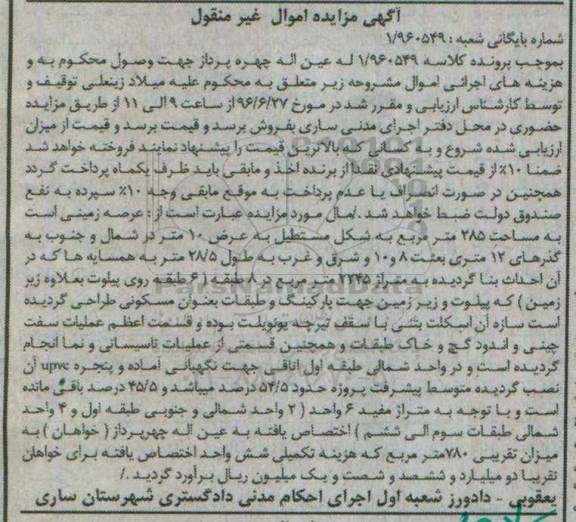 آگهی مزایده اموال غیر منقول
شماره بایگانی شعبه : ۱/۹۶۰۵۴۹
بموجب پرونده کلاسه ۱/۹۶۰۵۴۹ له عین اله چهره پرداز جهت وصول محکوم به و
هزینه های اجرائی اموال مشروحه زیر متعلق به محکوم علیه میلاد زینعلی توقیف و
توسط کارشناس ارزیابی و مقرر شد در مورخ ۹۶/۶/۲۷ از ساعت ۹ الی ۱۱ از طریق مزایده
حضوری در محل دفتر اجرای مدنی ساری بفروش برسد و قیمت برسد و قیمت از میزان
ارزیابی شده شروع و به کسانی که بالاترین قیمت را پیشنهاد نمایند فروخته خواهد شد
ضمنا ۱۰٪ از قیمت پیشنهادی نقدا از برنده اخذ و مابقی باید ظرف یکماه پرداخت گردد
همچنین در صورت انصراف یا عدم پرداخت به موقع مابقی وجه ۱۰٪ سپرده به نفع
صندوق دولت ضبط خواهد شد ./مال مورد مزایده عبارت است از : عرصه زمینی است
به مساحت ۲۸۵ متر مربع به شکل مستطیل به عرض ۱۰ متر در شمال و جنوب به
گذرهای ۱۲ متری بعثت ۸ و۱۰ و شرق و غرب به طول ۲۸/۵ متر به همسایه ها که در
آن احداث بنا گردیده به متراژ ۲۲۴۵ متر مربع در ۸ طبقه ( ۶ طبقه روی پیلوت بعلاوه زیر
زمین ) که پیلوت و زیر زمین جهت پارکینگ و طبقات بعنوان مسکونی طراحی گردیده
است سازه آن اسکلت بتنی با سقف تیرچه یونولیت بوده و قسمت اعظم عملیات سفت
چینی و اندود گچ و خاک طبقات و همچنین قسمتی از عملیات تاسیساتی و نما انجام
گردیده است و در واحد شمالی طبقه اول اتاقی جهت نگهبانی آماده و پنجره upvc آن
نصب گردیده متوسط پیشرفت پروژه حدود ۵۴/۵ درصد میباشد و ۴۵/۵ درصد باقی مانده
است و با توجه به متراژ مفید ۶ واحد ( ۲ واحد شمالی و جنوبی طبقه اول و ۴ واحد
شمالی طبقات سوم الی ششم ) اختصاص یافته به عین اله چهرپرداز ( خواهان ) به
میزان تقریبی ۷۸۰متر مربع که هزینه تکمیلی شش واحد اختصاص یافته برای خواهان
تقریبا دو میلیارد و ششصد و شصت و یک میلیون ریال برآورد گردید ./
یعقوبی - دادورز شعبه اول اجرای احکام مدنی دادگستری شهرستان ساری
ParsNamadData